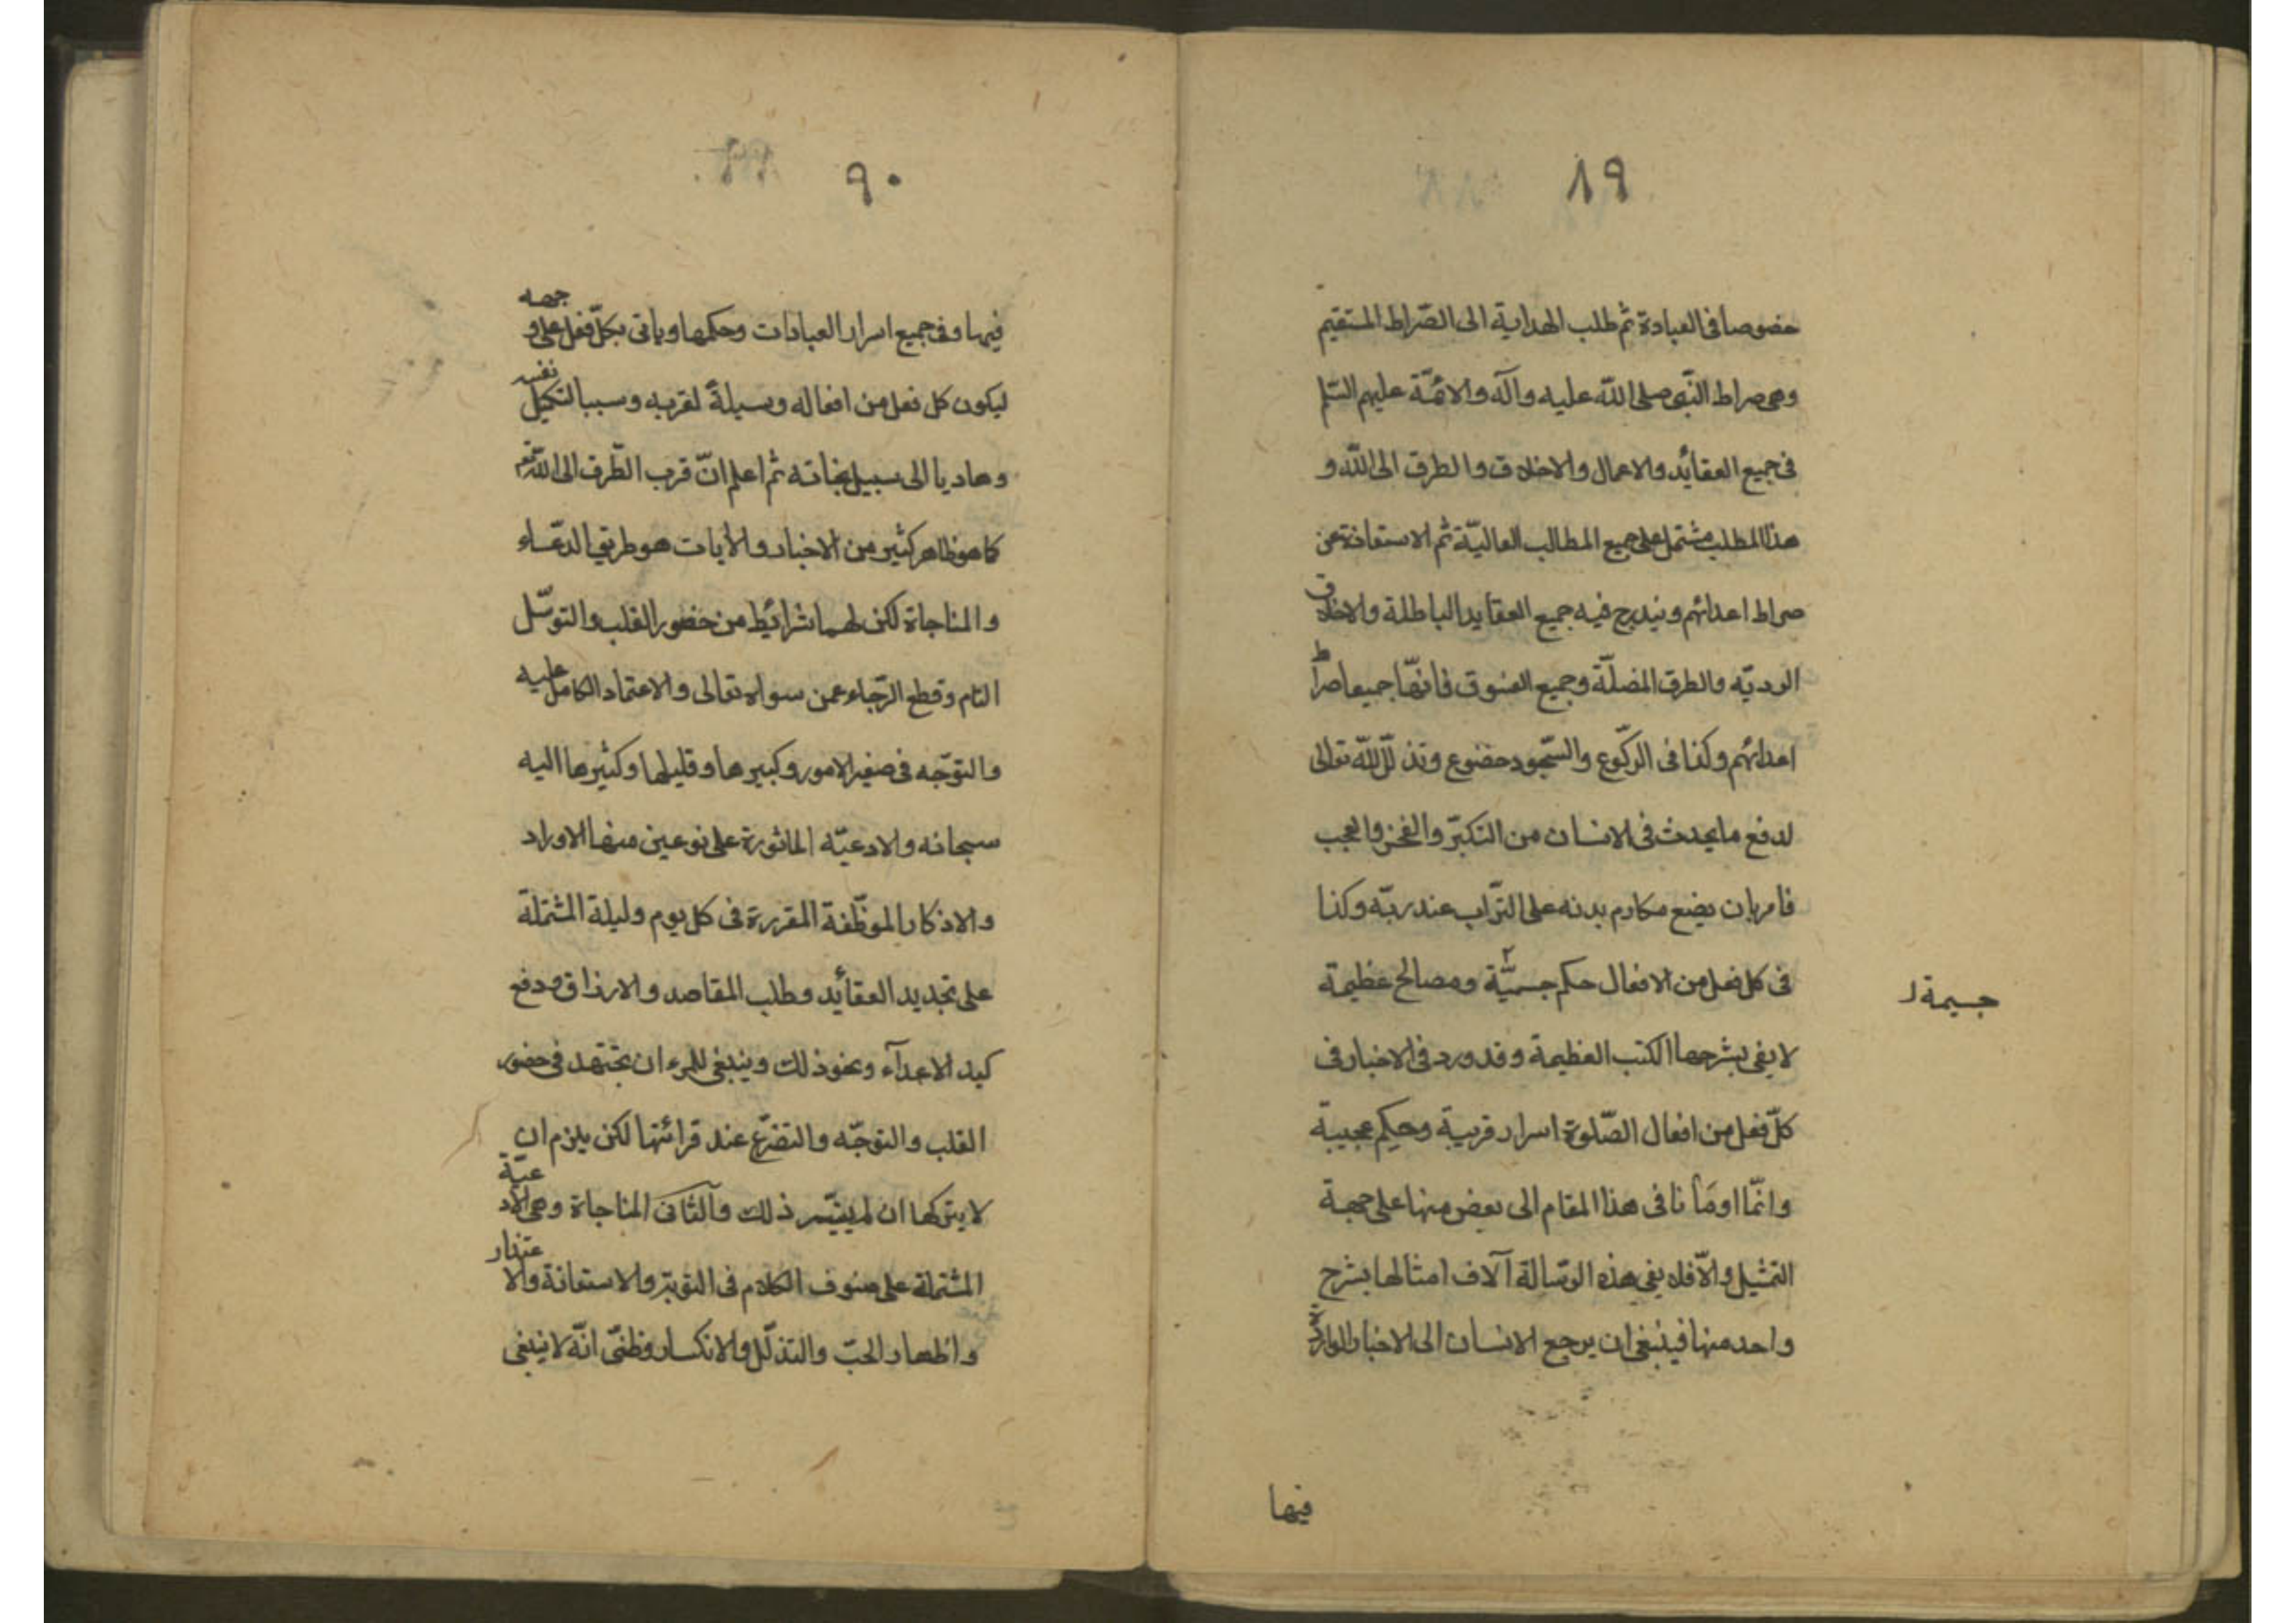 ٨٩
خصوصا فى العبادة ثم طلب الهداية الى الصّراط المستقيم
وهى صراط النّبى صلى اللّه عليه وآله والائمّة عليهم السّلم
فى جميع العقائد والاعمال والاخلاق والطرق الى اللّه و
هذا المطلب مشتمل على جميع المطالب العاليّة ثم الاستعاذة عن
صراط اعدائهم ويندرج فيه جميع العقايد الباطلة والاخلاق
الرديّه والطرق المضلّة وجميع الفسوق فانهّا جميعا صراط
اعدائهم وكذا فى الركّوع والسّجود خضوع وتذلّل للّه تعالى
لدفع ما يحدث فى الانسان من التكبرّ والفخر والعجب
فامر بان يضع مكارم بدنه على الترّاب عند ربّه وكذا
فى كل فعل من الافعال حكم جسميّة ومصالح عظيمة
جسيمة ل
لا يفى بشرحها الكتب العظيمة وقد ورد فى الاخبار فى
كلّ فعل من افعال الصّلوة اسرار قريبة وحكم عجيبة
وانمّا اومَأنا فى هذا المقام الى بعض منها على جهة
التمثيل والاّ فلا يفى هذه الرسّالة آلاف امثالها بشرح
واحد منها فينبغى ان يرجع الانسان الى الاخبار الواردة
فيها
٩٠
فيها وفى جميع اسرار العبادات وحكمها وياتى بكلّ فعل على وجهه
ليكون كل فعل من افعاله وسيلةً لقربه وسببا لتكميل نفسه
وهاديا الى سبيل نجاته ثم اعلم انّ قرب الطّرق الى اللّه تع
كما هو ظاهر كثير من الاخبار والايات هو طريق الدعّاء
والمناجاة لكن لهما شرائط من حضور القلب والتوسّل
التام وقطع الرّجاء عمن سواه تعالى والاعتماد الكامل عليه
والتوجّه فى صغير الامور وكبيرها وقليلها وكثيرها اليه
سبحانه والادعيّه الماثورة على نوعين منها الاوراد
والاذكار الموظّفة المقررة فى كل يوم وليلة المشتملة
على تجديد العقائد وطلب المقاصد والارزاق ودفع
كيد الاعدآء ونحو ذلك وينبغى للمرء ان يجتهد فى حضور
القلب والتوجّه والتضرّع عند قرائتها لكن يلزم ان
لا يتركها ان لم يتيّسر ذلك والثانى المناجاة وهى الادعيّة
المشتملة على صنوف الكلام فى التوبة والاستعانة والاعتذار
واظهار الحبّ والتذلّل والانكسار وظنّى انّه لا ينبغى